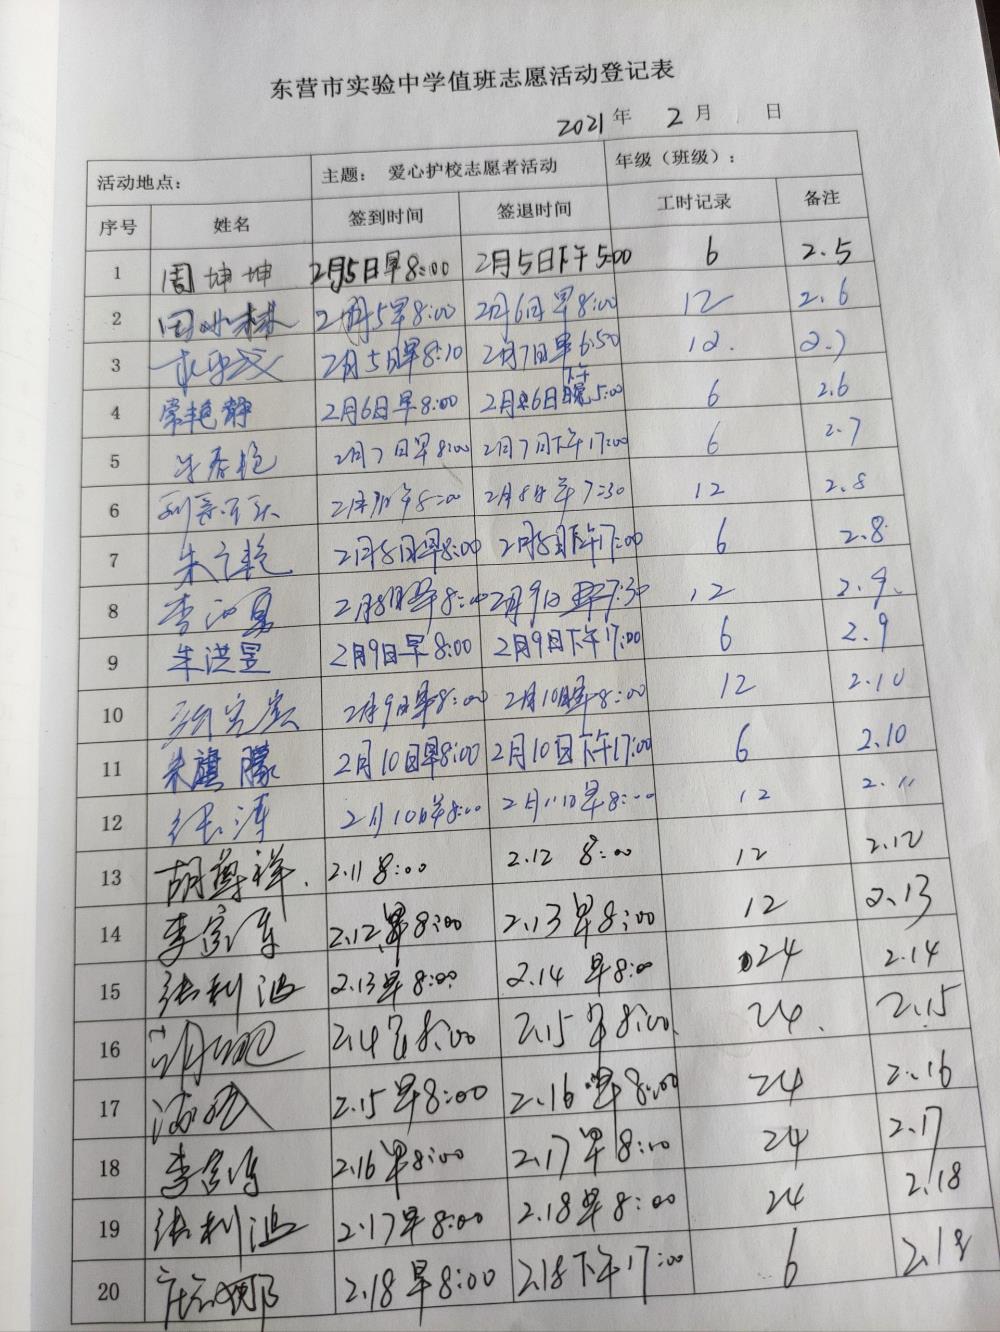 东营市实验中学值班志愿活动登记表
2021年 2月 日
活动地点： 主题： 爱心护校志愿者活动 年级（班级）：
序号 姓名 签到时间 签退时间 工时记录 备注
1 周坤坤 2月5日早8:00 2月5日下午5:00 6 2.5
2 2月5早8:00 2月6日早8:00 12 2.6
3 2月5日早8:10 2月7日早6:50 12. 2.7
4 常艳静 2月6日早8:00 2月6日下午5:00 6 2.6
5 2月7日早8:00 2月7日下午17:00 6 2.7
6 2月8日早7:30 12 2.8
7 朱 2月8日早8:00 2月8日下午17:00 6 2.8
8 李 2月8日早8:00 2月9日早7:30 12 2.9.
9 朱洪昱 2月9日早8:00 2月9日下午17:00 6 2.9
10 2月9日早8:00 2月10日早8:00 12 2.10
11 朱旗 2月10日早8:00 2月10日下午17:00 6 2.10
12 2月10日早8:00 早8:00 12 2.11
13 胡尊祥. 2.11 8:00 2.12 8:00 12 2.12
14 李 2.12早8:00 2.13早8:00 12 2.13
15 张利波 2.13早8:00 2.14 早8:00 24 2.14
16 8:00 2.15早8:00. 24. 2.15
17 2.15早8:00 2.16早8:00 24 2.16
18 李 2.16早8:00 2.17早8:00 24 2.17
19 张利波 2.17早8:00 2.18早8:00 24 2.18
20 2.18早8:00 2.18下午17:00 6 2.18